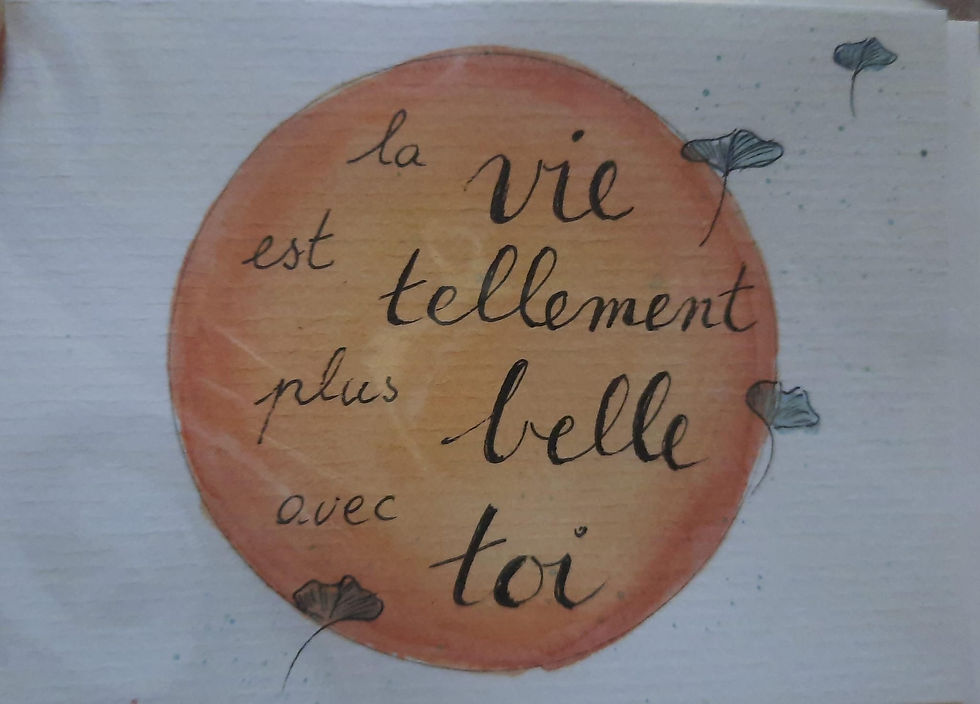 la vie
est tellement
plus belle
avec toi